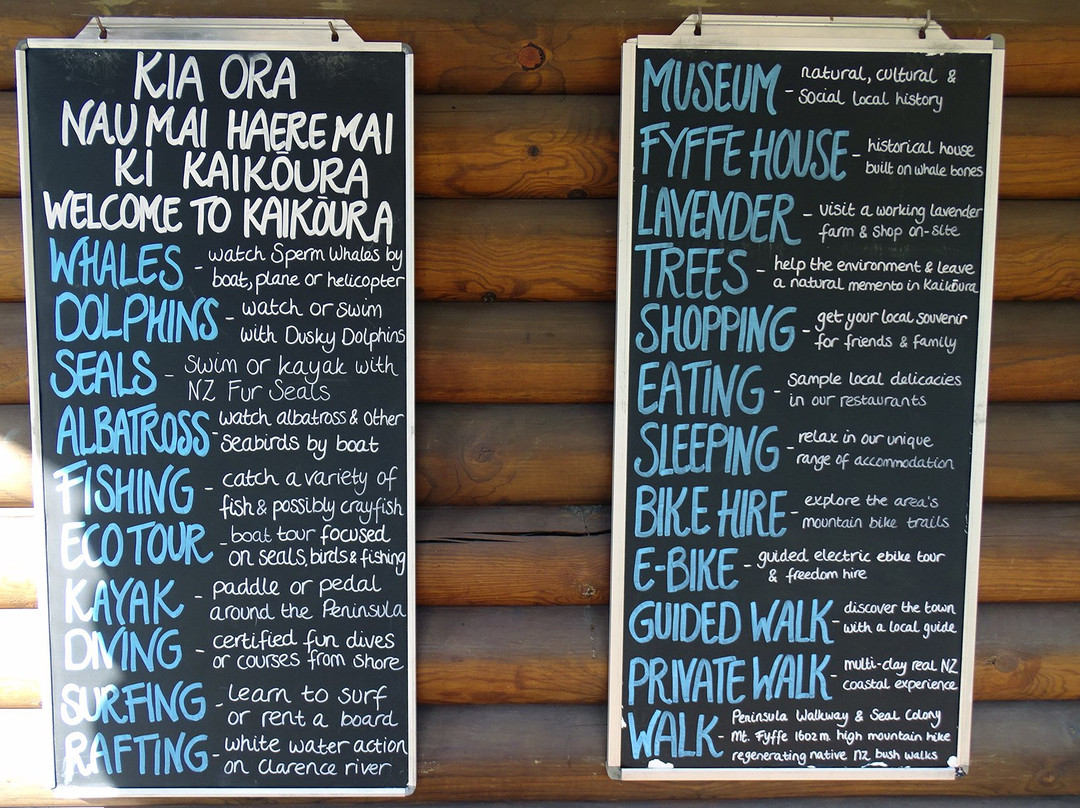 KIA ORA
NAU MAI HAERE MAI
KI KAIKŌURA
WELCOME TO KAIKŌURA
WHALES - watch Sperm Whales by
boat, plane or helicopter
DOLPHINS - watch or swim
with Dusky Dolphins
SEALS - Swim or kayak with
NZ Fur Seals
ALBATROSS - watch albatross & other
seabirds by boat
FISHING - catch a variety of
fish & possibly crayfish
ECO TOUR - boat tour focused
on seals, birds & fishing
KAYAK - paddle or pedal
around the Peninsula
DIVING - certified fun dives
or courses from shore
SURFING - learn to surf
or rent a board
RAFTING - white water action
on Clarence river
MUSEUM - natural, cultural &
social local history
FYFFE HOUSE - historical house
built on whale bones
LAVENDER - visit a working lavender
farm & shop on-site
TREES - help the environment & leave
a natural memento in Kaikōura
SHOPPING - get your local souvenir
for friends & family
EATING - sample local delicacies
in our restaurants
SLEEPING - relax in our unique
range of accommodation
BIKE HIRE - explore the area's
mountain bike trails
E-BIKE - guided electric ebike tour
& freedom hire
GUIDED WALK - discover the town
with a local guide
PRIVATE WALK - multi-day real NZ
coastal experience
WALK - Peninsula Walkway & Seal Colony
Mt. Fyffe 1602m high mountain hike
regenerating native NZ bush walks